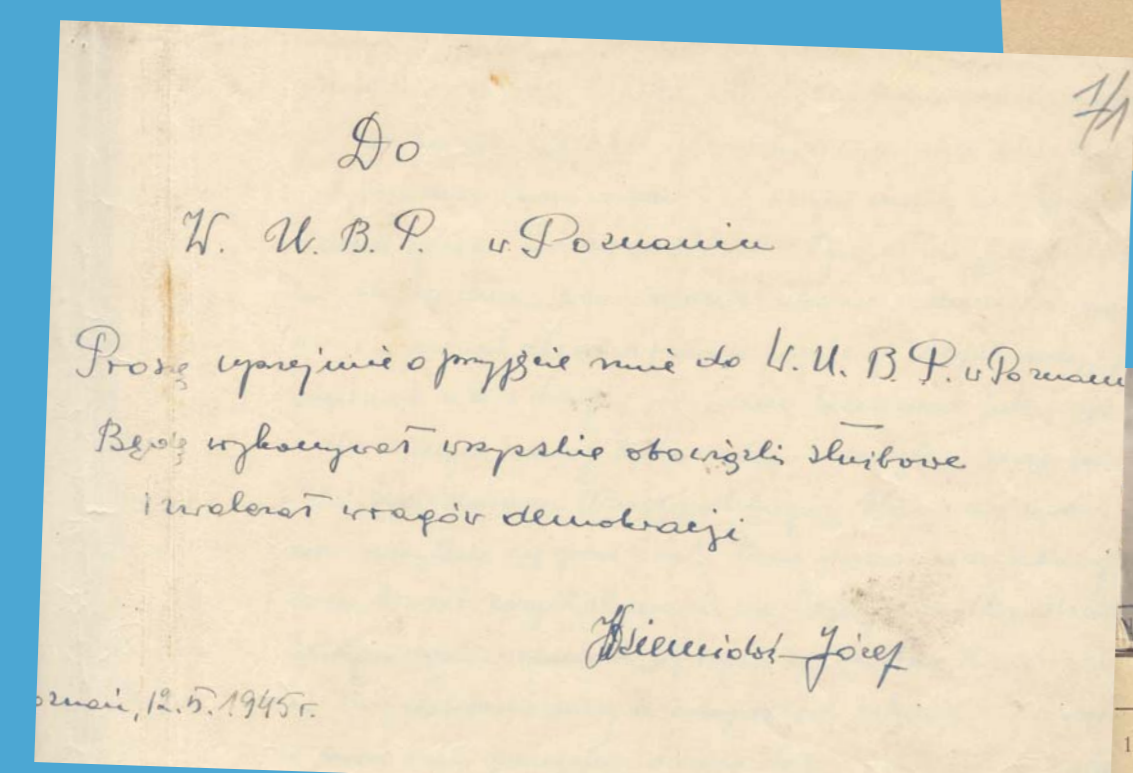 1/1
Do
W. U. B. P. w Poznaniu
Proszę uprzejmie o przyjęcie mnie do W. U. B. P. w Poznan
Będę wykonywał wszystkie obowiązki służbowe
i zwalczał wrogów demokracji
Józef
oznań, 12.5.1945r.